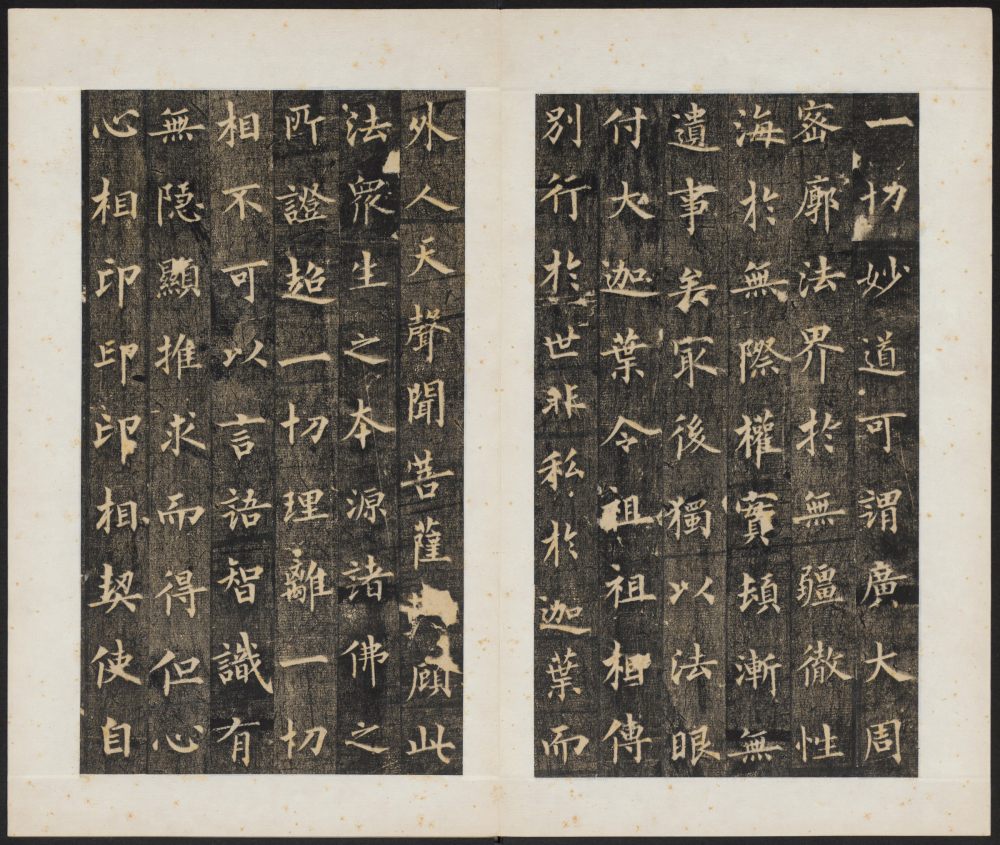 一切妙道可謂廣大周
宻廓法界扵無疆徹性
海扵無際權實頓漸無
遺事矣冣後獨以法眼
付大迦葉令祖祖相傳
別行扵世非私扵迦葉而
外人天聲聞菩薩顧此
法衆生之本源諸佛之
所證超一切理離一切
相不可以言語智識有
無隱顯推求而得但心
心相印印印相契使自